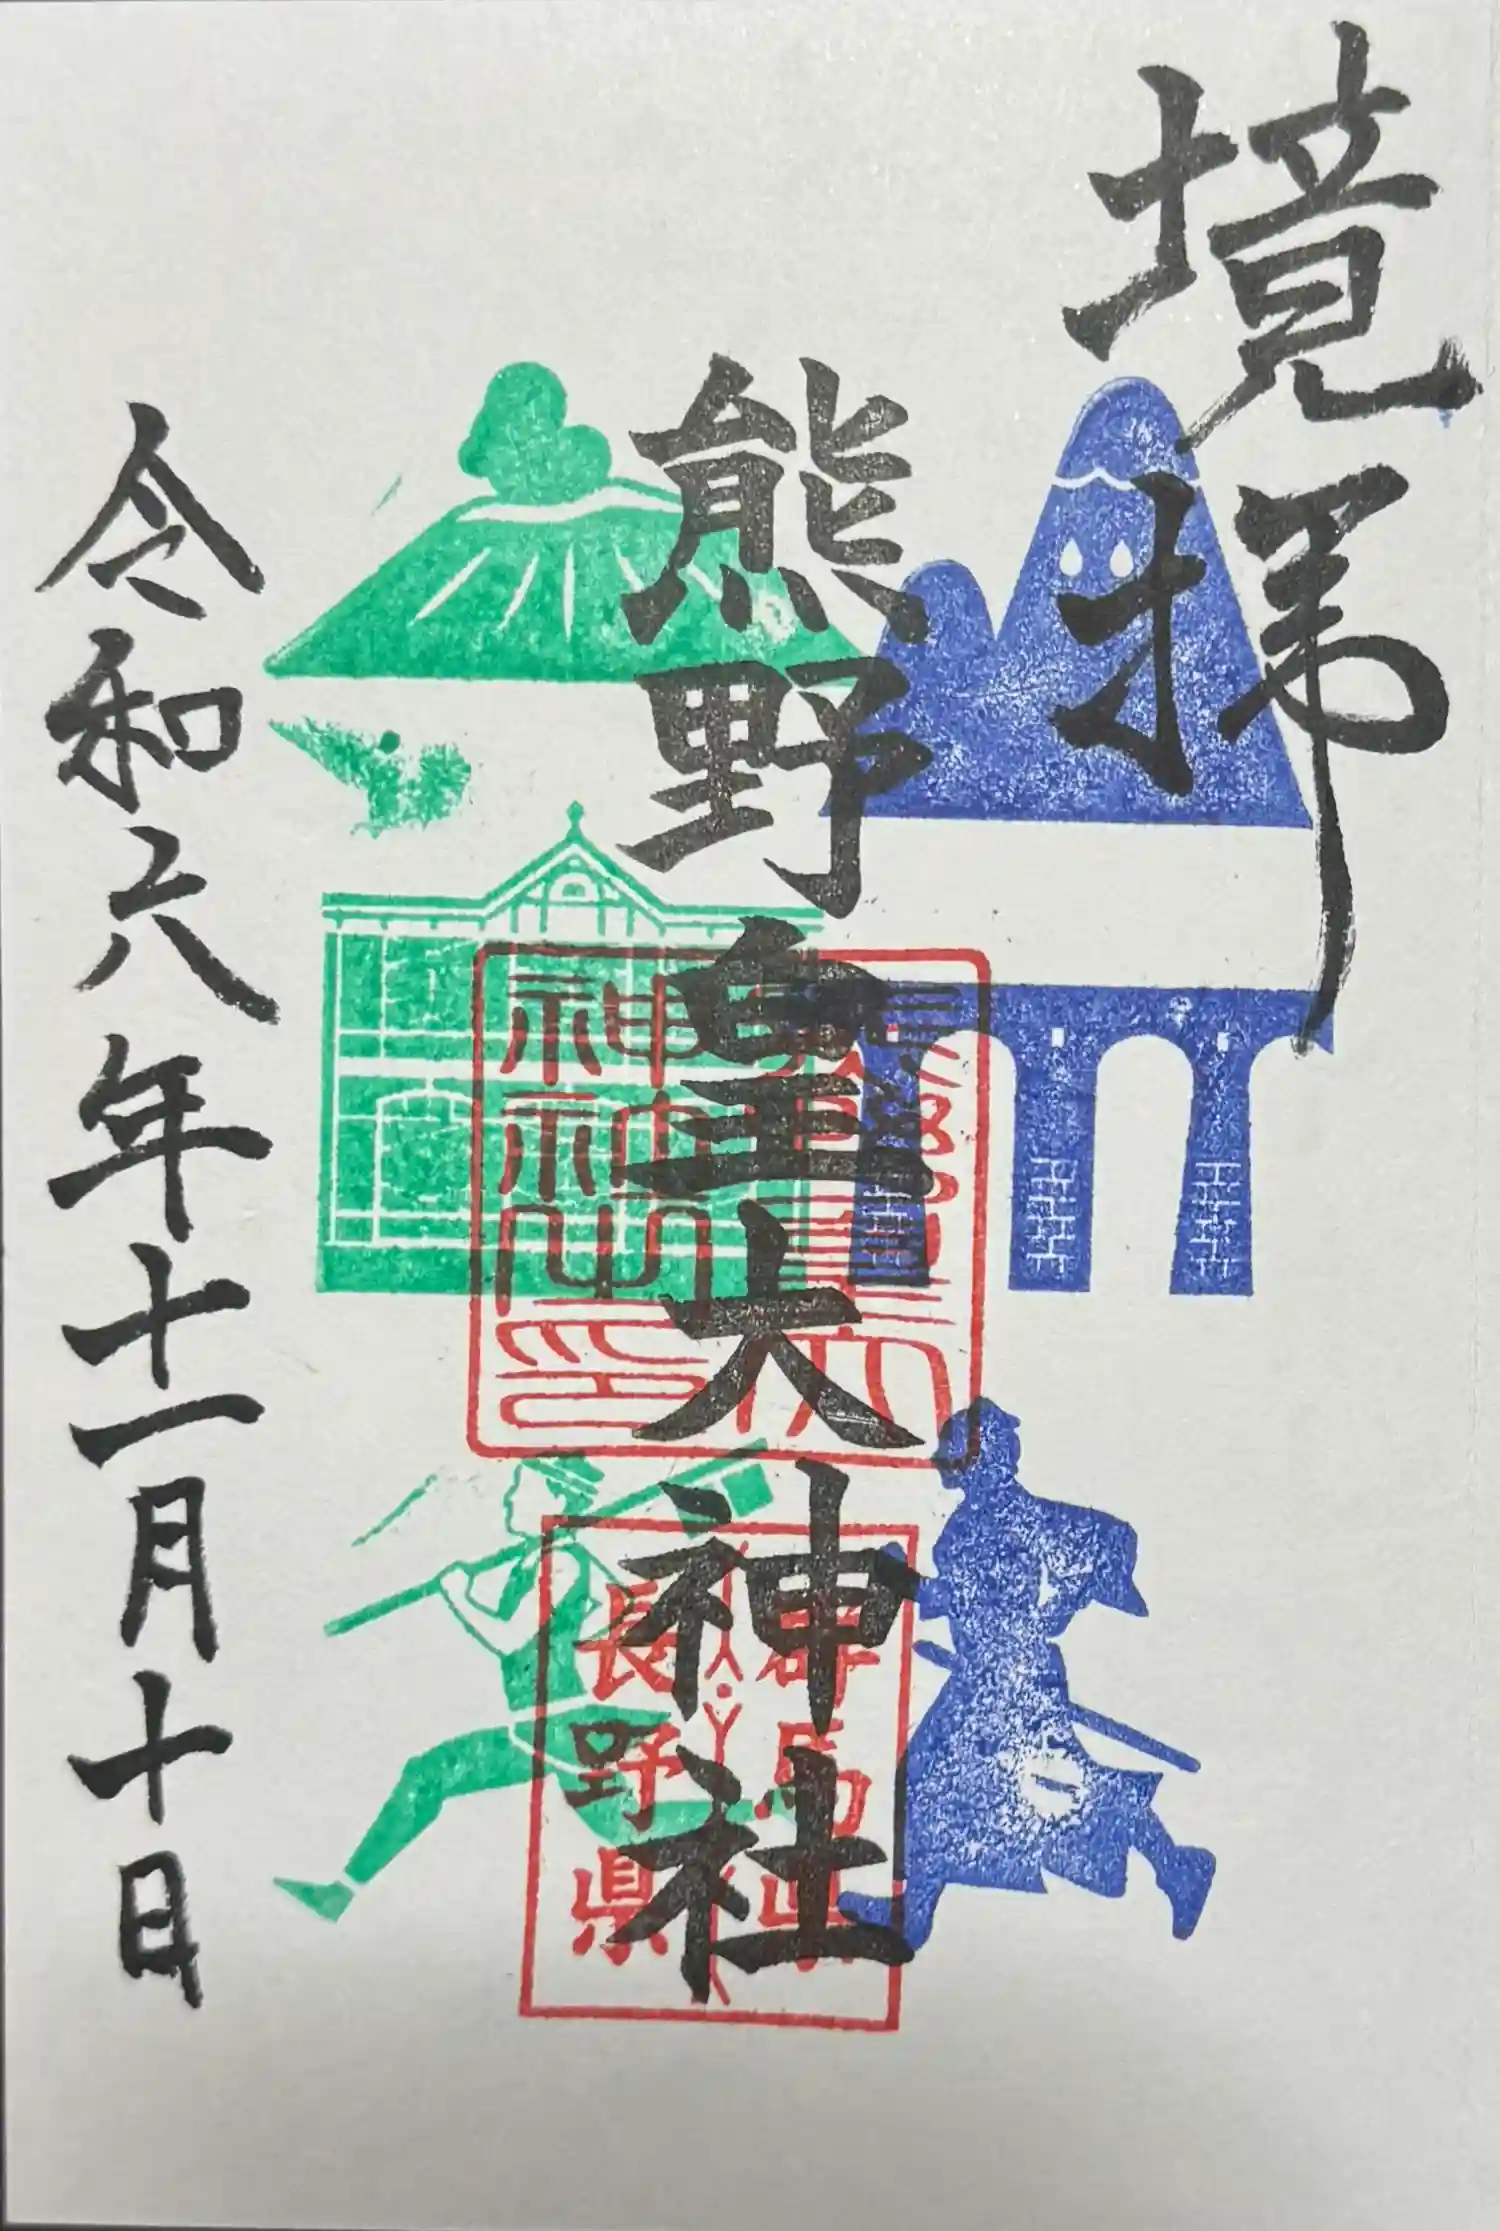 境拝
熊野皇大神社
群馬県
長野県
令和六年十一月十日